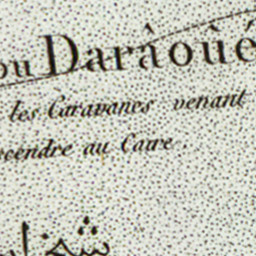 ou Darâoûé
les Caravanes venant
scendre au Caire.